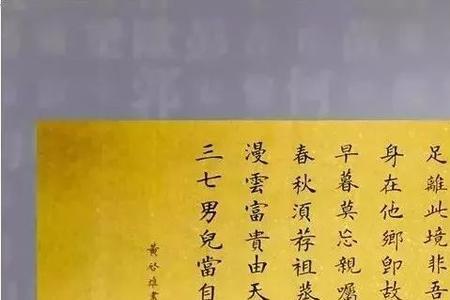 足離此境非吾
身在他鄉卽故
早暮莫忘親囑
春秋須荐祖蒸
漫雲富貴由天
三七男兒當自
黃